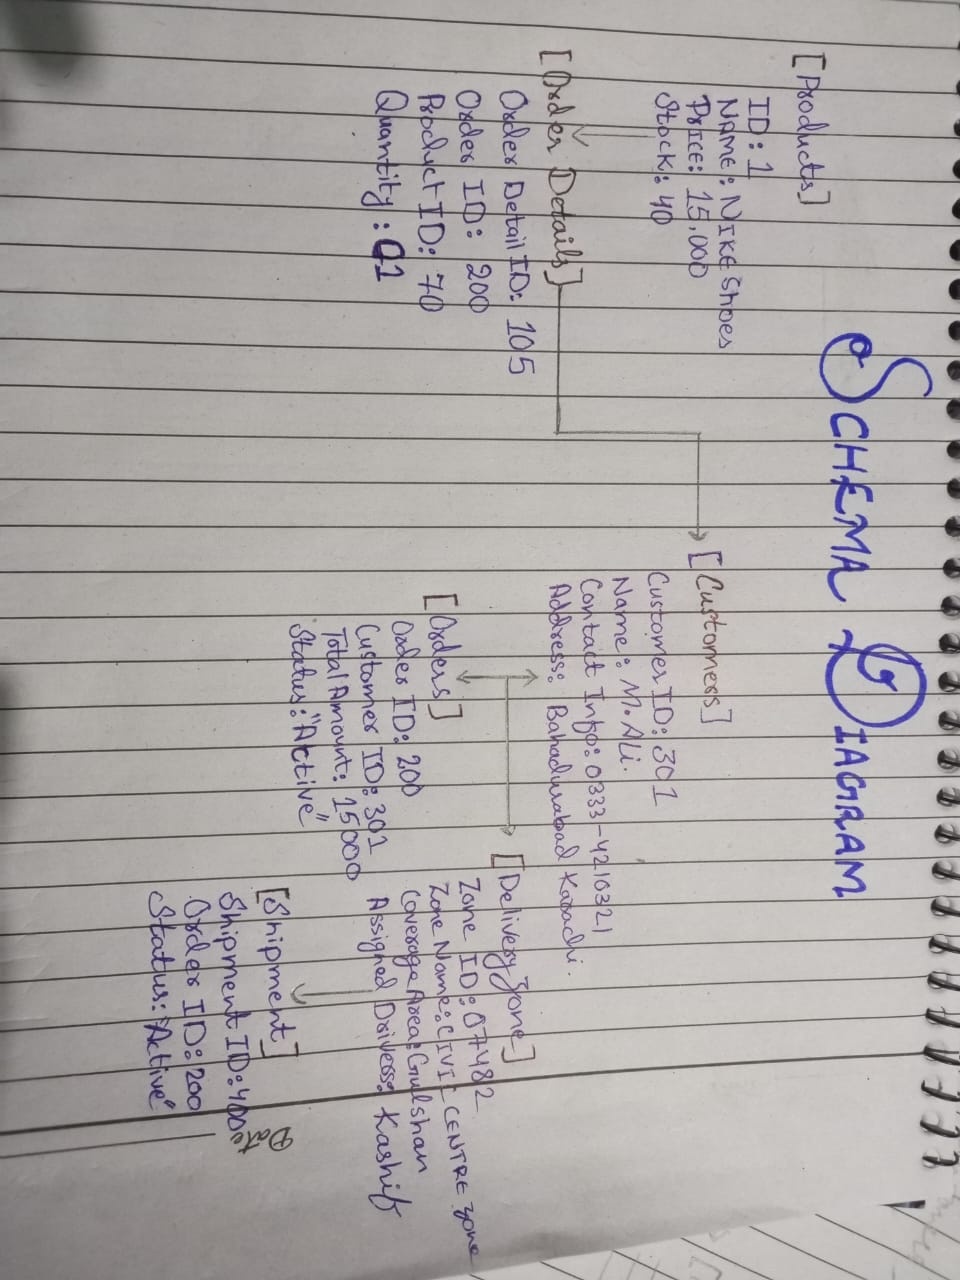 SCHEMA DIAGRAM
[Products]
ID: 1
NAME: NIKE Shoes
PRICE: 15,000
Stock: 40
[Order Details]
Order Detail ID: 105
Order ID: 200
Product ID: 70
Quantity: 01
[Customers]
Customer ID: 301
Name: M. ALi.
Contact Info: 0333-4210321
Address: Bahadurabad Karachi.
[Orders]
Order ID: 200
Customer ID: 301
Total Amount: 15000
Status: "Active"
[Delivery Zone]
Zone ID: 07482
Zone Name: CIVIC CENTRE zone
Coverage Area: Gulshan
Assigned Drivers: Kashif
[Shipment]
Shipment ID: 400
Order ID: 200
Status: "Active"
Date